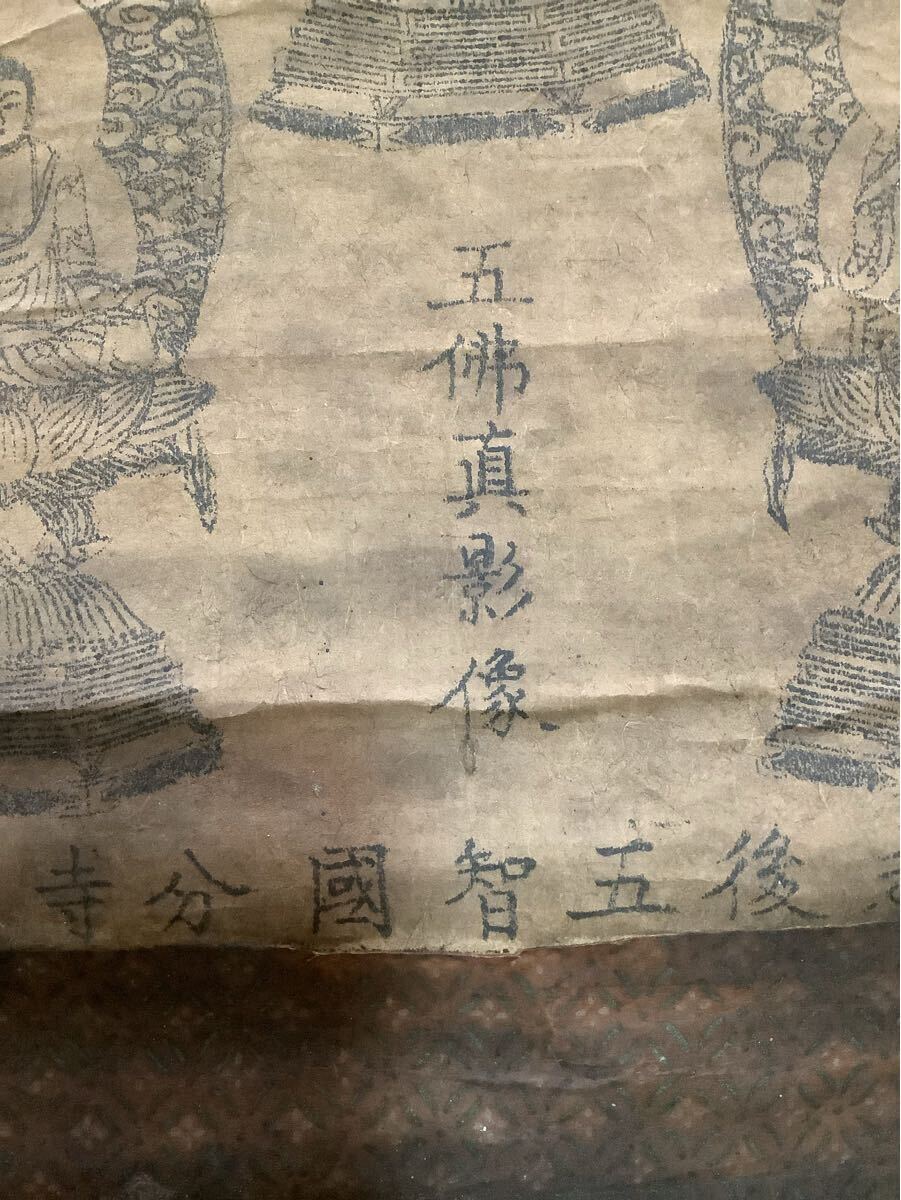 五佛真影像
後五智國分寺